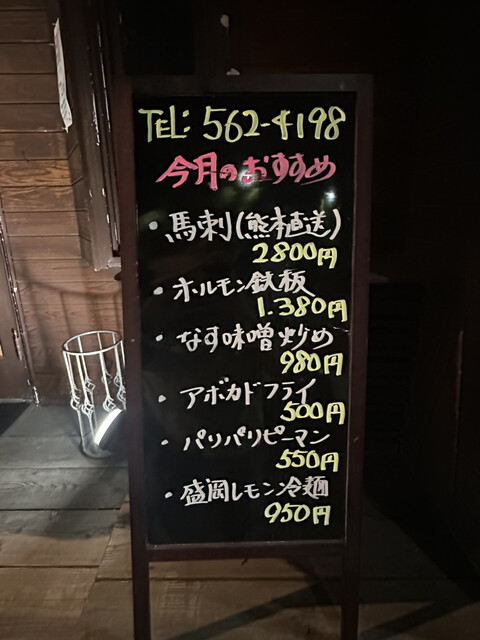 TEL: 562-4198
今月のおすすめ
・馬刺(熊本直送)
2800円
・ホルモン鉄板
1.380円
・なす味噌炒め
980円
・アボカドフライ
500円
・パリパリピーマン
550円
・盛岡レモン冷麺
950円